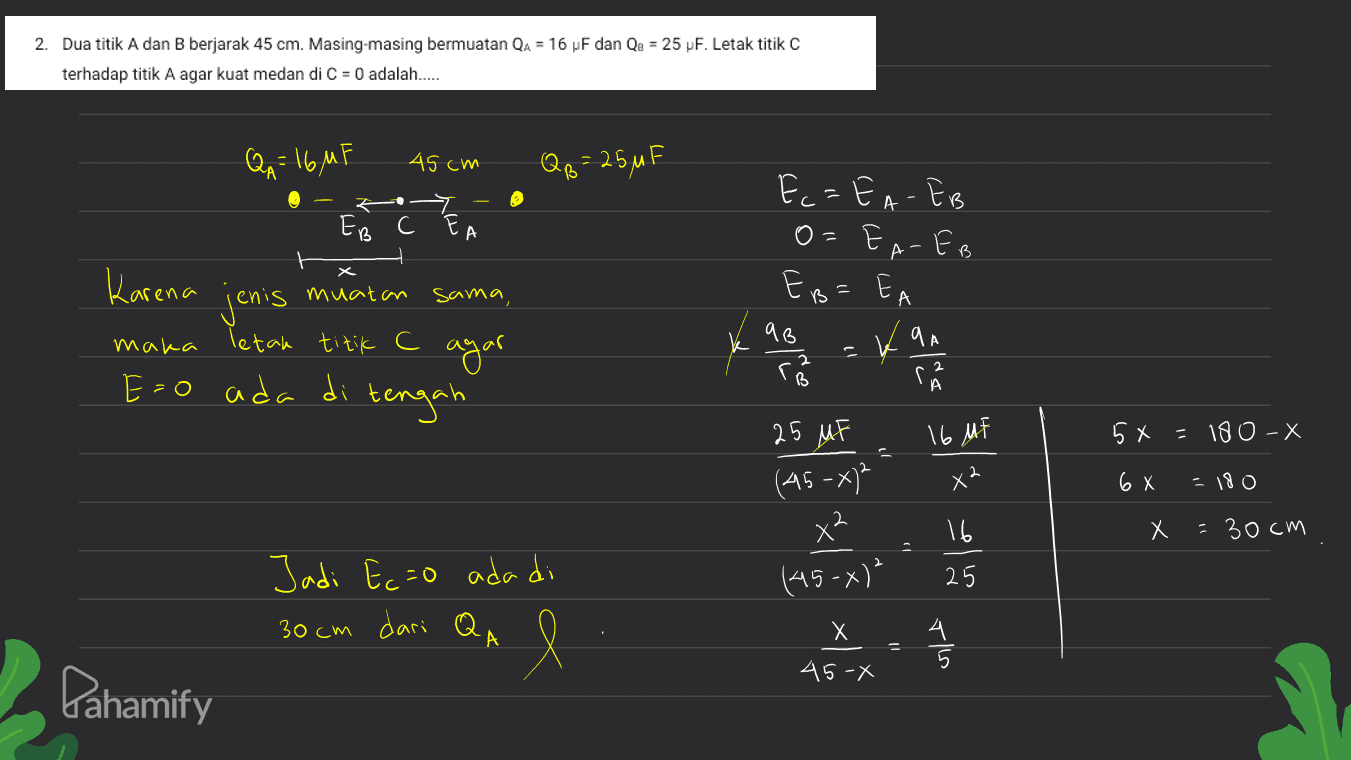 2. Dua titik A dan B berjarak 45 cm. Masing-masing bermuatan QA = 16 µF dan QB = 25 µF. Letak titik C
terhadap titik A agar kuat medan di C = 0 adalah.....
QA = 16 µF 45 cm QB = 25 µF
EB C EA
x
Karena jenis muatan sama,
maka letak titik C agar
E = 0 ada di tengah
Jadi Ec = 0 ada di
30 cm dari QA
Ec = EA - EB
0 = EA - EB
EB = EA
k qB/rB² = k qA/rA²
25 µF/(45-x)² = 16 µF/x²
x²/(45-x)² = 16/25
x/45-x = 4/5
5x = 180 - x
6x = 180
x = 30 cm.
Pahamify